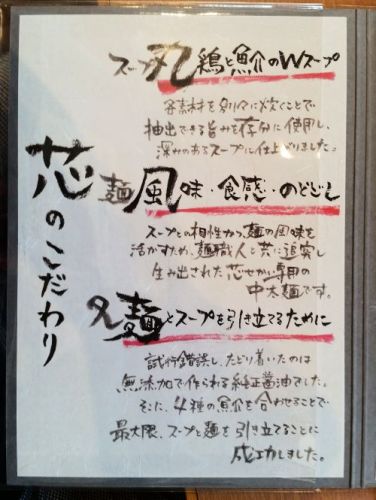 芯のこだわり
スープ 丸鶏と魚介のWスープ
各素材を別々に炊くことで
抽出できる旨みを存分に使用し、
深みのあるスープに仕上げりました。
麺 風味・食感・のどごし
スープとの相性かつ、麺の風味を
活かすため、麺職人と共に追究し
生み出された芯せかい専用の
中太麺です。
タレ 麺とスープを引き立てるために
試行錯誤し、たどり着いたのは
無添加で作られる純正醤油でした。
そこに、4種の魚介を合わせることで
最大限、スープと麺を引き立てることに
成功しました。